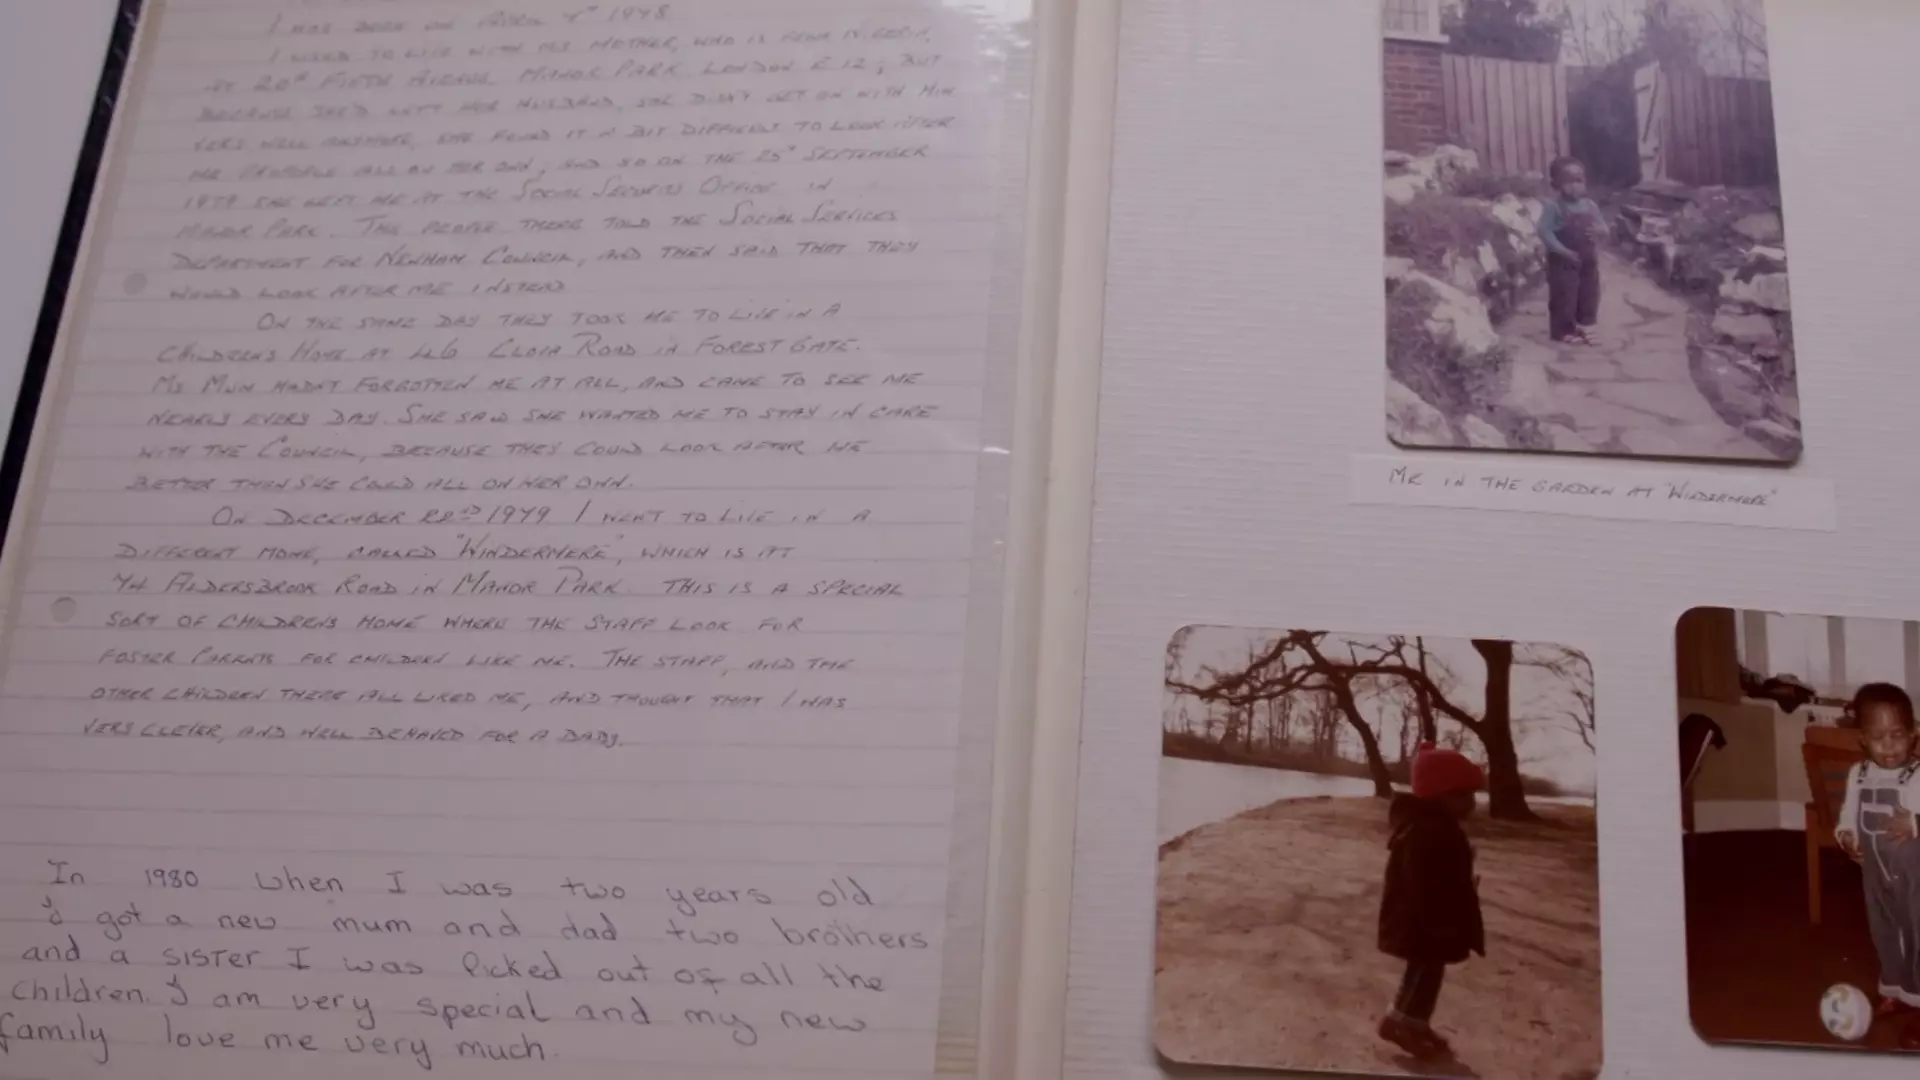 I was born on April 4th 1978
I used to live with my mother, who is from Nigeria,
at 208 Fifth Avenue Manor Park London E12; but
because she'd left her husband, she didn't get on with him
very well anymore, she found it a bit difficult to look after
me properly all on her own; and so on the 25th September
1979 she left me at the Social Security Office in
Manor Park. The people there told the Social Services
Department for Newham Council, and then said that they
would look after me instead
On the same day they took me to live in a
Childrens Home at Clova Road in Forest Gate.
My Mum hadn't forgotten me at all, and came to see me
nearly every day. She said she wanted me to stay in care
with the Council, because they could look after me
better than she could all on her own.
On December 22nd 1979 I went to live in a
different home, called "Windermere", which is at
Aldersbrook Road in Manor Park. This is a special
sort of childrens home where the staff look for
foster parents for children like me. The staff, and the
other children there all liked me, and thought that I was
very clever, and well behaved for a baby.
In 1980 when I was two years old
I got a new mum and dad two brothers
and a sister I was Picked out of all the
children. I am very special and my new
family love me very much.
Me in the garden at "Windermere"